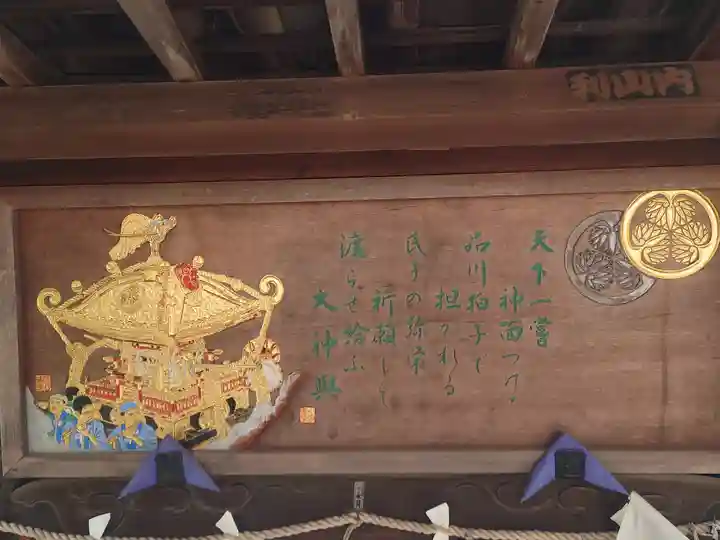 内山利
天下一嘗
神面つけ
品川拍子で
担がれる
氏子の弥栄
祈願して
渡らせ給ふ
大神輿